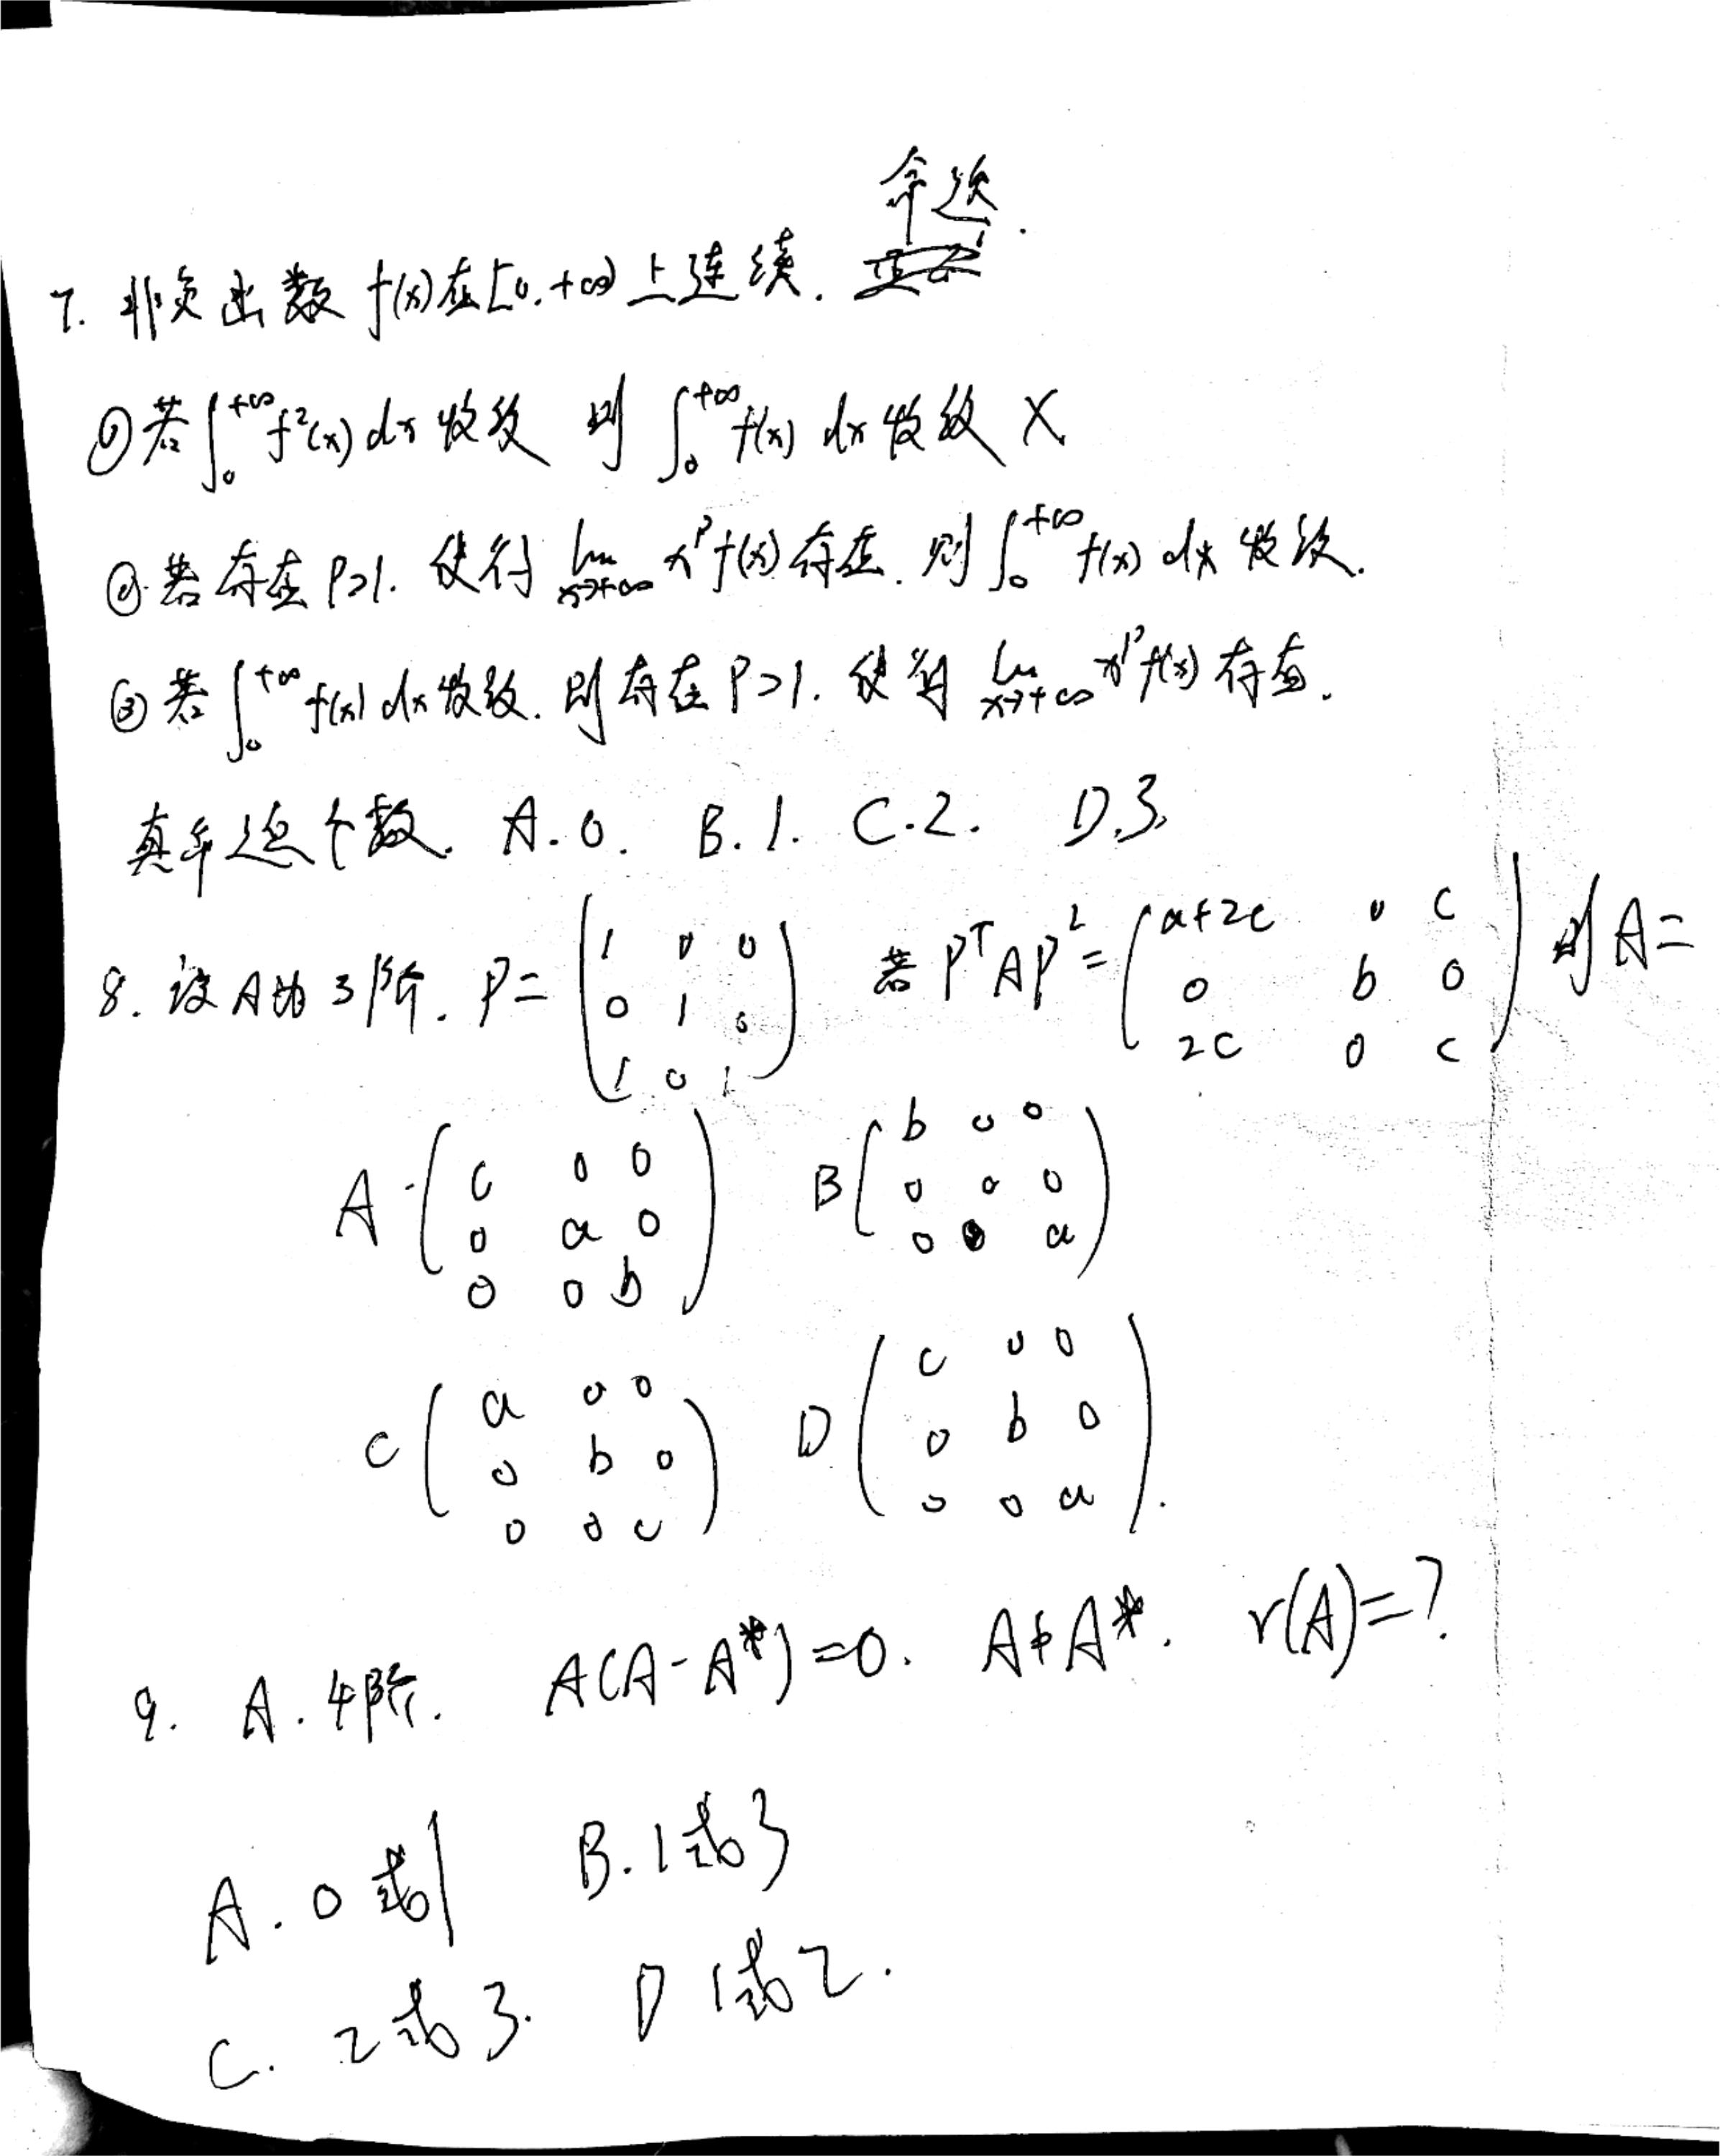 命题.
7. 非负函数 f(x)在[0,+∞)上连续.
①若∫₀^{+∞} f²(x) dx 收敛 则 ∫₀^{+∞} f(x) dx 收敛 X
②若存在 P>1. 使得 lim_{x→+∞} x^P f(x)存在. 则 ∫₀^{+∞} f(x) dx 收敛.
③若∫₀^{+∞} f(x) dx 收敛. 则存在 P>1. 使得 lim_{x→+∞} x^P f(x) 存在.
真命题个数. A.0. B.1. C.2. D.3.
8. 设A为3阶. P= (1 0 0; 0 1 0; 1 0 1) 若 PᵀAP² = (a+2c 0 c; 0 b 0; 2c 0 c) 则A=
A. (c 0 0; 0 a 0; 0 0 b) B (b 0 0; 0 0 0; 0 0 a)
C (a 0 0; 0 b 0; 0 0 c) D (c 0 0; 0 b 0; 0 0 a).
9. A. 4阶. A(A-A*)=0. A≠A*. r(A)=?
A. 0或1 B. 1或3
C. 2或3. D 1或2.